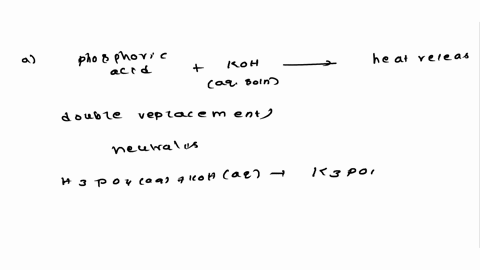 a) phosphoric acid + KOH (aq soln) ⟶ heat releas
double replacement,
neuralus
H3PO4(aq) + KOH(aq) → K3PO